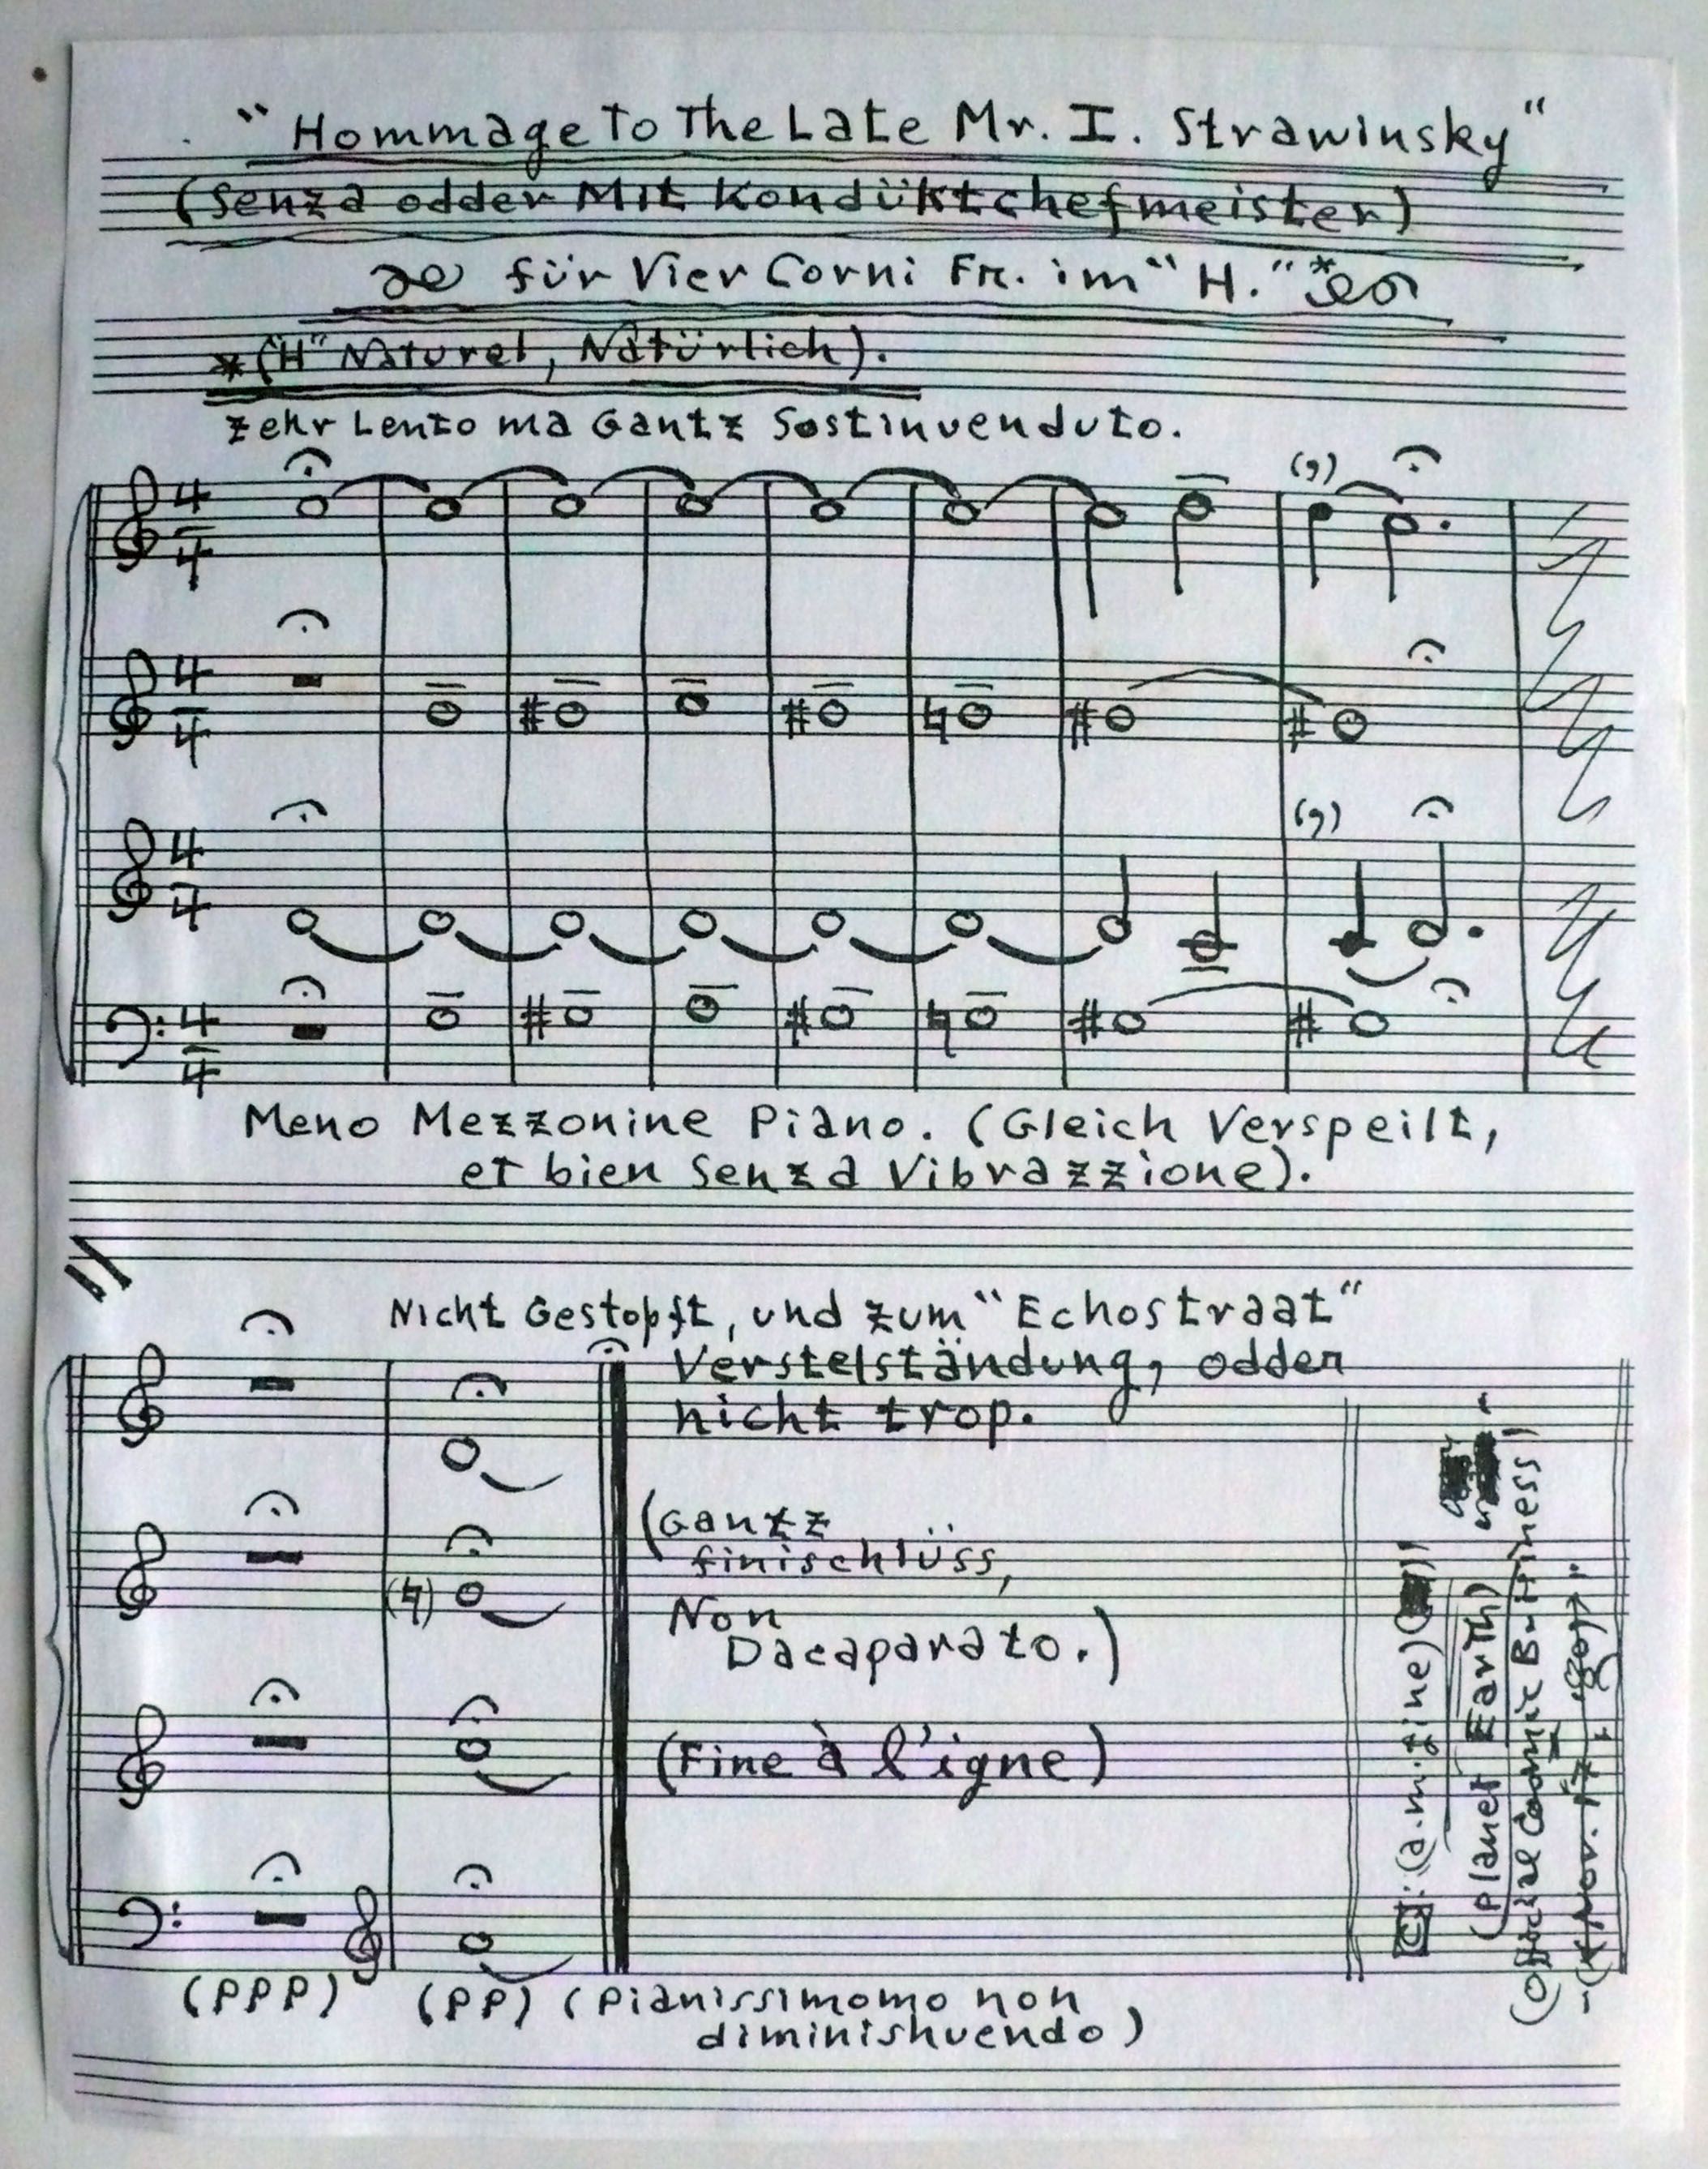 "Hommage To The Late Mr. I. Strawinsky"
(Senza odder Mit Kondüktchefmeister)
für Vier Corni Fr. im "H."*
*("H" Naturel, Natürlich).
Zehr Lento ma Gantz Sostinuenduto.
4 4
(9) (9)
Meno Mezzonine Piano. (Gleich Verspeilt,
et bien Senza Vibrazzione).
Nicht Gestopft, und zum "Echostraat"
Verstelständung, odder
nicht trop.
(Gantz
finischlüss,
Non
Dacaparato.)
(Fine à l'igne)
(PPP) (PP) (Pianissimomo non
diminishuendo)
(a.m.fine)
(Planet Earth)
(Official Cosmic B-Hiness)